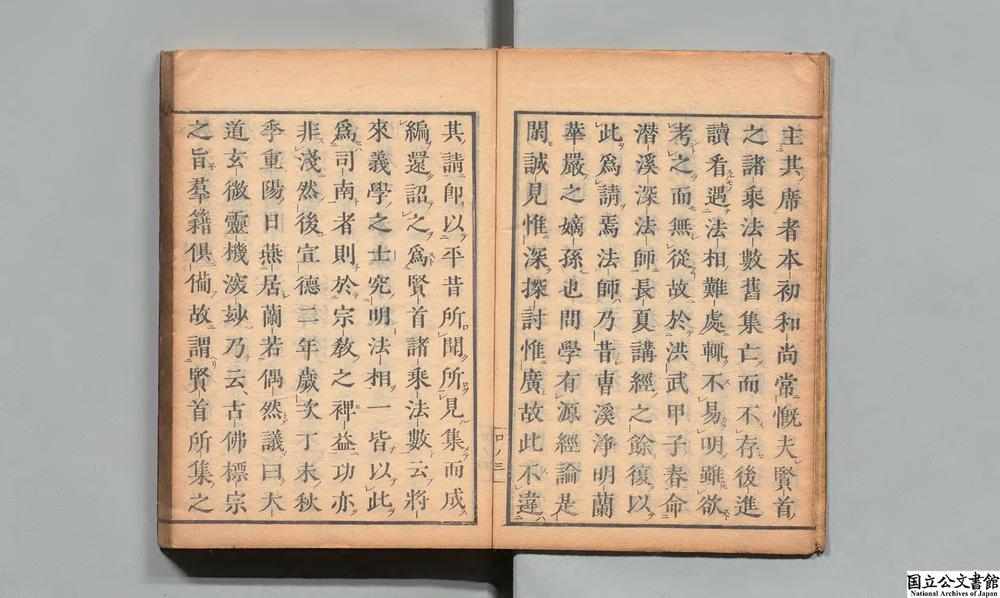 主其席者本初和尚常慨夫賢首
之諸乘法數舊集亡而不存後進
讀看遇法相難處輒不易明雖欲
考之而無從故於洪武甲子春命
潛溪深法師長夏講經之餘復以
此爲請焉法師乃昔曺溪淨明蘭
華嚴之嫡孫也問學有源經論是
閑誠見惟深探討惟廣故此不違
其請卽以平昔所聞所見集而成
編還詔之爲賢首諸乘法數云將
來義學之士究明法相一皆以此
爲司南者則於宗敎之裨益功亦
非淺然後宣德三年歲次丁未秋
季重陽日燕居蘭若偶然議曰大
道玄微靈機深妙乃云古佛標宗
之旨羣籍俱備故謂賢首所集之
国立公文書館
National Archives of Japan